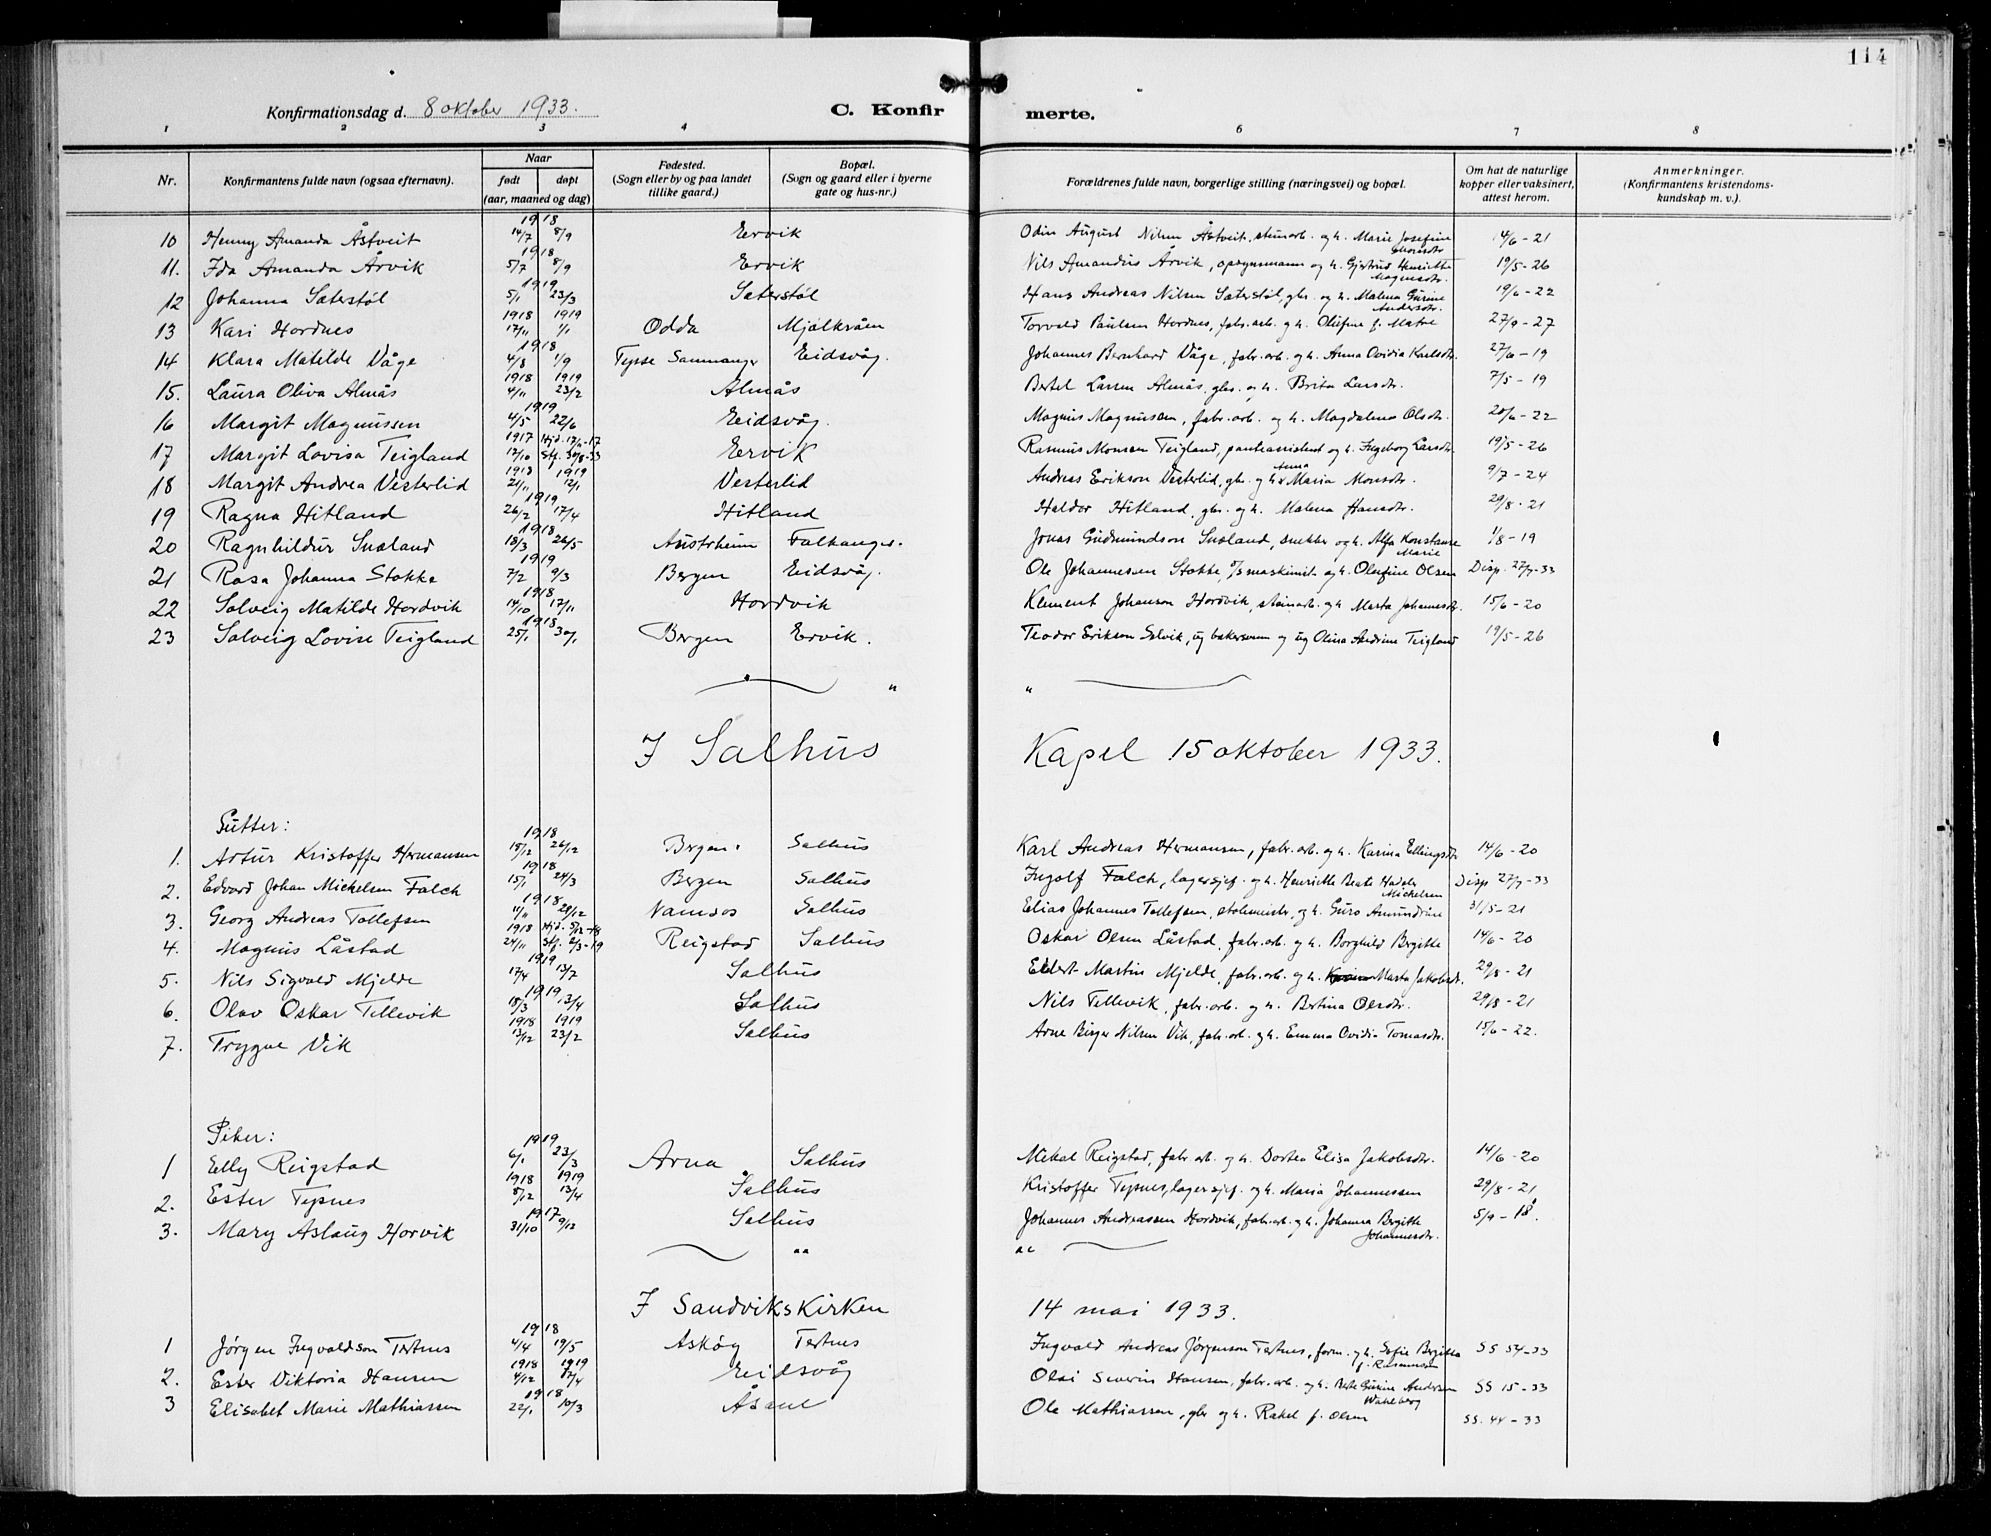 114
Konfirmationsdag d. 8 oktober 1933.
C. Konfirmerte.
1 2 3 4 6 7 8
Nr.
Konfirmantens fulde navn (ogsaa efternavn).
Naar
født døpt
(aar, maaned og dag)
Fødested.
(Sogn eller by og paa landet
tillike gaard.)
Bopæl.
(Sogn og gaard eller i byerne
gate og hus-nr.)
Forældrenes fulde navn, borgerlige stilling (næringsvei) og bopæl.
Om hat de naturlige
kopper eller vaksinert,
attest herom.
Anmerkninger.
(Konfirmantens kristendoms-
kundskap m. v.).
10 Henny Amanda Åstveit 1918 14/7 8/9 Ervik Odin August Nilsen Åstveit, steinarb. og h. Marie Josefine 14/6-21
11. Ida Amanda Årvik 1918 5/7 8/9 Ervik Nils Amandus Årvik, opsynsmann og h. Gjertrud Henriette Mogensdr. 19/5-26
12 Johanna Sæterstøl 1919 5/1 23/3 Sæterstøl Hans Andreas Nilsen Sæterstøl, gbr. og h. Malena Gurine Andersdr. 19/6-22
13 Kari Hordnes 1918 1919 17/11 1/1 Odda Mjølkråen Torvald Paulsen Hordnes, fabr.arb. og h. Olufine f. Matre 27/9-27
14 Klara Matilde Våge 1918 4/8 1/9 Tysse Samnanger Eidsvåg. Johannes Bernhard Våge, fabr.arb. og h. Anna Ovidia Karlsdr. 27/6-19
15. Laura Oliva Almås 1918 1919 4/11 23/2 Almås Bertel Larsen Almås, gbr. og h. Brita Larsdr. 7/5-19
16 Margit Magnussen 1919 4/5 22/6 Eidsvåg. Magnus Magnussen, fabr.arb. og h. Magdalena Olsdr. 20/6-22
17 Margit Lovisa Teigland 1917 Hjd. 17/11-17 12/10 Stf. 30/8-33 Ervik Rasmus Monsen Teigland, og h. Ingeborg Larsdr. 19/5-26
18 Margit Andrea Vesterlid 1918 1919 21/11 12/1 Vesterlid Andreas Erikson Vesterlid, gbr. og h. Anna Maria Monsdr. 9/7-24
19 Ragna Hitland 1919 26/2 17/4 Hitland Haldor Hitland, gbr. og h. Malena Hansdr. 29/8-21
20 Ragnhildur Snæland 1918 18/3 26/5 Austrheim Falkanger. Jonas Gudmundson Snæland, snekker og h. Alfa Konstanse Marie 1/8-19
21 Rosa Johanna Stokke 1919 7/2 9/3 Bergen Eidsvåg. Ole Johannessen Stokke, d/s maskinist og h. Olufine Olsen Disp. 27/7-33
22 Solveig Matilde Hordvik 1918 14/10 17/11 Hordvik Klement Johanson Hordvik, steinarb. og h. Marta Johannesdr. 15/6-20
23 Solveig Lovise Teigland 1918 25/1 30/1 Bergen Ervik. Teodor Erikson Solvik, ug bakersvenn og ug Olina Andrine Teigland 19/5-26
" "
I Salhus Kapel 15 oktober 1933.
Gutter:
1. Artur Kristoffer Hermansen 1918 15/12 26/12 Bergen. Salhus Karl Andreas Hermansen, fabr.arb. og h. Karina Ellingsdr. 14/6-20
2. Edvard Johan Michelsen Falch 1918 15/1 24/3 Bergen Salhus Ingolf Falch, lagersjef. og h. Henriette Beate Michelsen Disp 27/7-33
3. Georg Andreas Tollefsen 1918 11/11 28/12 Namsos Salhus Elias Johannes Tollefsen, og h. Guro Amundsine 31/5-21
4. Magnus Låstad 1918 Hjd. 5/12-18 24/11 Stf. 2/3-19 Reigstad Salhus Oskar Olsen Låstad, fabr.arb. og h. Borghild Bergitte 14/6-20
5. Nils Sigvald Mjelde 1919 17/4 13/7 Salhus Eldert Martin Mjelde, fabr.arb. og h. Marta Jakobsdr. 29/8-21
6. Olav Oskar Tellevik 1919 18/3 13/4 Salhus Nils Tellevik, fabr.arb. og h. Bertina Olsdr. 29/8-21
7. Trygve Vik 1918 1919 13/12 23/2 Salhus Arne Birger Nilsen Vik, fabr.arb. og h. Emma Ovidia Tomasdr. 15/6-22.
Piker:
1 Elly Reigstad 1919 6/1 23/3 Arna Salhus Mikal Reigstad, fabr.arb. og h. Dortea Elisa Jakobsdr. 14/6-20
2. Ester Tepsnes 1918 1919 8/12 13/4 Salhus Kristoffer Tepsnes, lagersjef. og h. Maria Johannessen 29/8-21
3. Mary Aslaug Horvik 1917 31/10 9/12 Salhus Johannes Andreassen Hordvik, fabr.arb. og h. Johanna Bergitte Johannesdr. 5/9-18.
" "
I Sandvikskirken 14 mai 1933.
1 Jørgen Ingvaldson Tertnes 1918 4/4 19/5 Askøy Tertnes Ingvald Andreas Jørgenson Tertnes, form. og h. Sofie Bergitta f. Rasmussen SS 54-33
2. Ester Viktoria Hansen 1918 1919 4/12 17/4 Eidsvåg Olai Severin Hansen, fabr.arb. og h. Berte Gurine Andersen SS 15-33
3 Elisabet Marie Mathiassen 1918 22/1 10/3 Åsane Ole Mathiassen, gbr og h. Rakel f. Olsen SS. 44-33